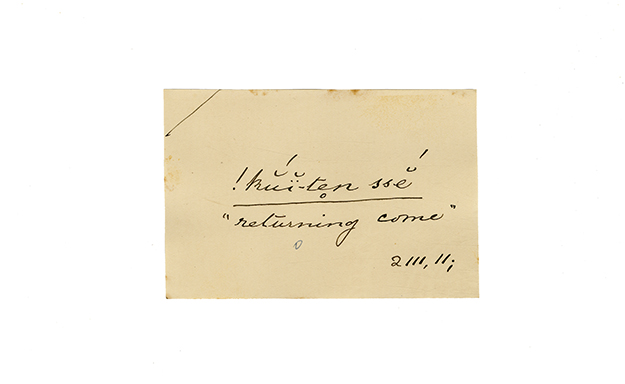 !kú̆ï-te̥n ssĕ́
"returning come"
2111,11;